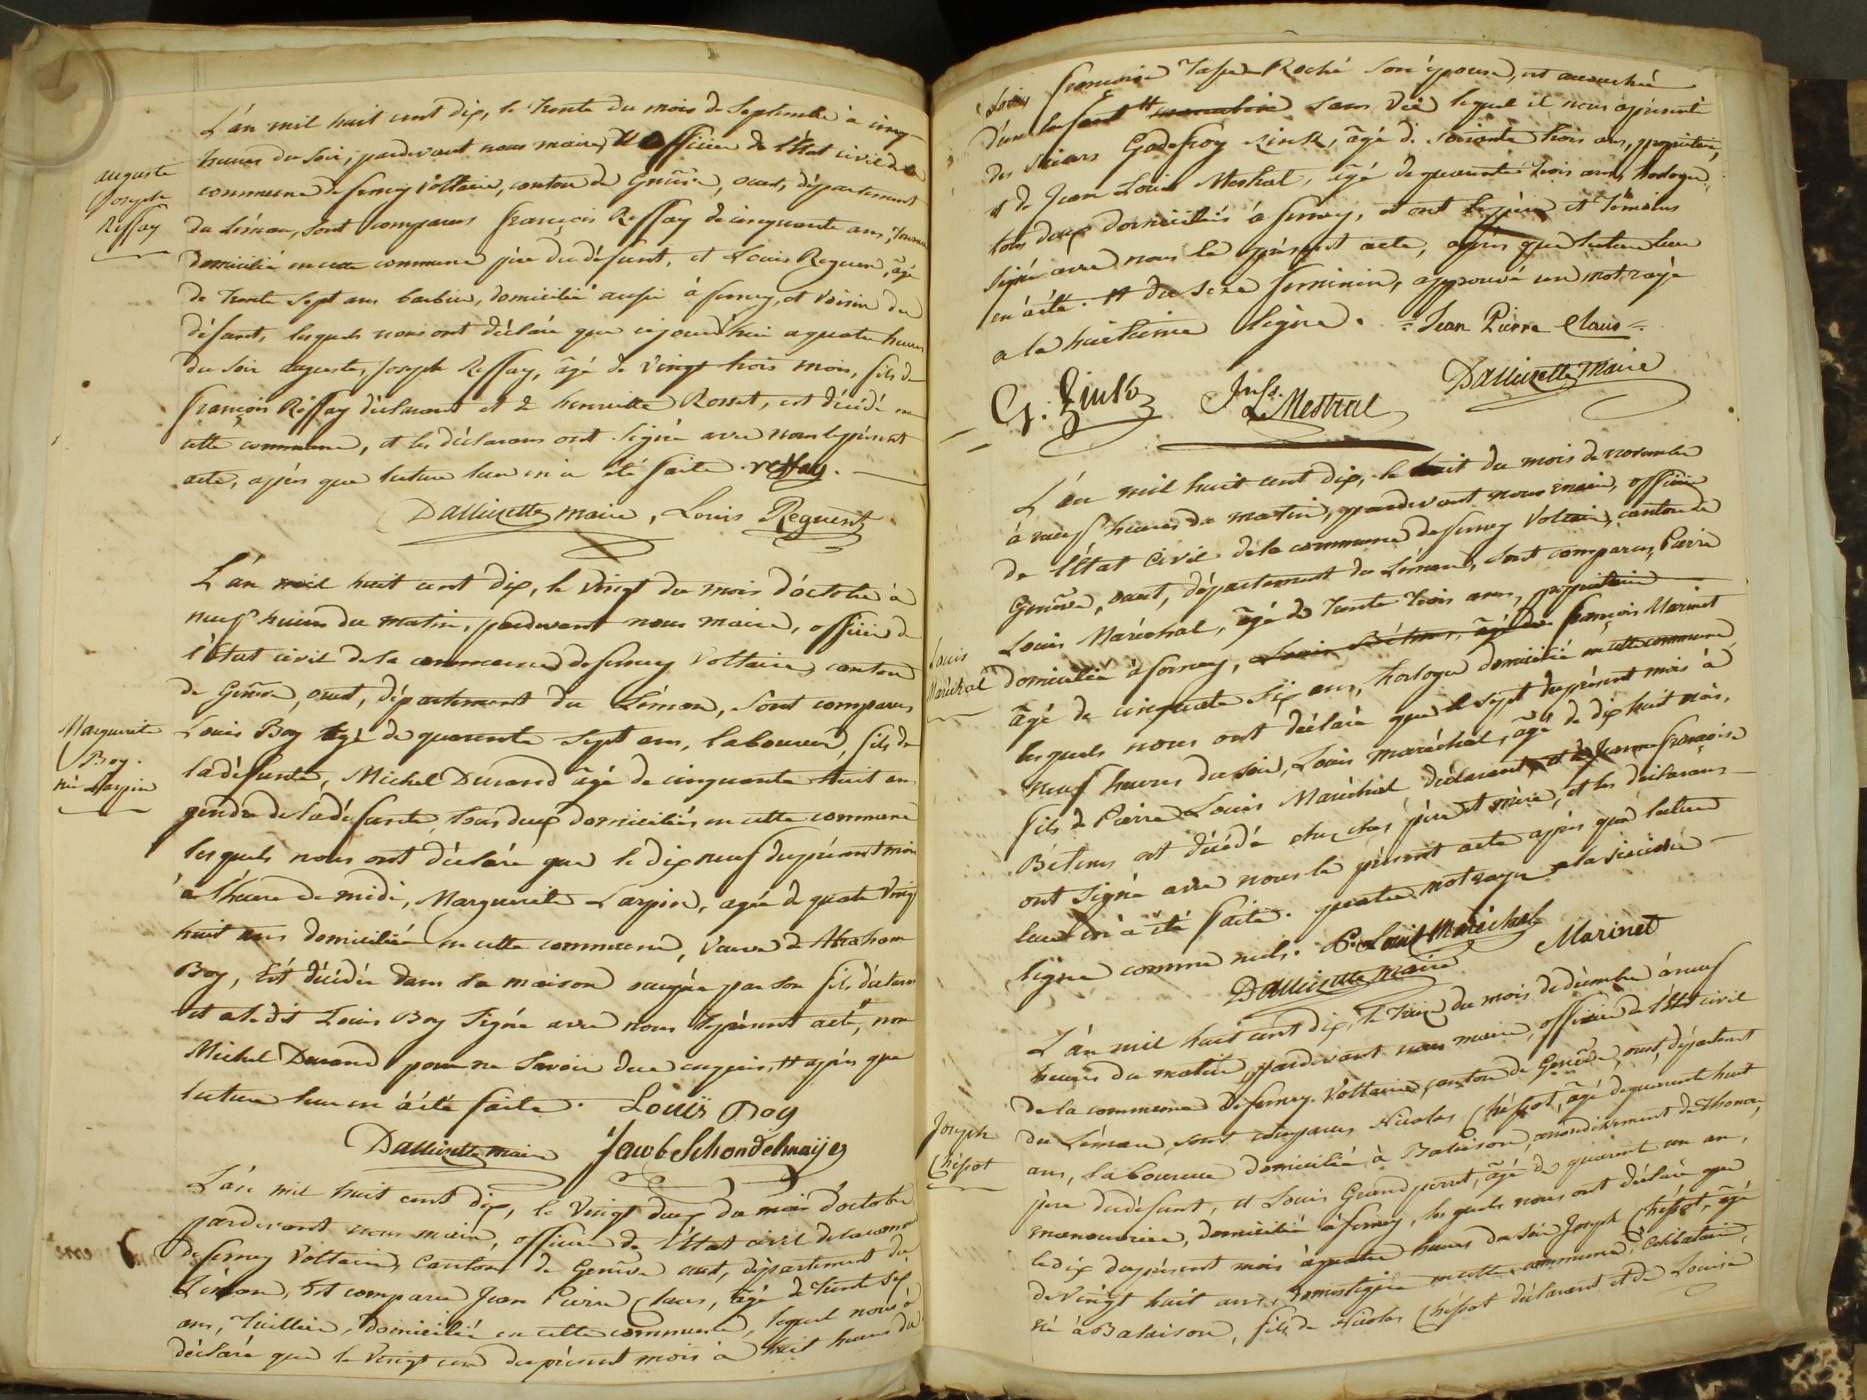 L'an mil huit cent dix, le trente du mois de Septembre à cinq
heures du Soir, pardevant nous maire, Officier de l'État civil de la
commune de ferney Voltaire, canton de Genêve, ouest, département
du Léman, sont comparus françois Reffay de cinquante ans,
domicilié en cette commune père du défunt, et Louis Reguen, âgé
de trente sept ans barbier, domicilié aussi à ferney, et Voisin du
défunt, lesquels nous ont déclaré que cejourd'hui a quatre heures
du Soir auguste, Joseph Reffay, âgé de Vingt trois mois, fils de
françois Reffay déclarant et de henriette Rosset, est décédé en
cette commune, et les déclarans ont Signé avec nous le présent
acte, après que lecture leur en a été faite. reffay.
Dallizette maire, Louis Reguent
auguste
Joseph
Reffay
L'an mil huit cent dix, le Vingt du mois d'octobre à
neuf heures du matin, pardevant nous maire, officier de
l'état civil de la commune de ferney Voltaire, canton
de Genêve, ouest, département du Léman, Sont comparus
Louis Boy âgé de quarente Sept ans, laboureur, fils de
la défunte, Michel Durand âgé de cinquante huit ans
gendre de la défunte, tous deux domiciliés en cette commune
lesquels nous ont déclaré que le dix neuf du présent mois
à l'heure de midi, Marguerite Larpin, agée de quatre Vingt
huit ans domiciliée en cette commune, Veuve de Abraham
Boy, Est décédée dans la maison occupée par son fils déclarant
et a ledit Louis Boy Signé avec nous le présent acte, non
Michel Durand pour ne Savoir de ce enquis, H après que
lecture leur en a été faite. Louis Boy
Dallizette maire Jacob Schondelmaijer
Marguerite
Boy.
née Larpin
L'an mil huit cent dix, le Vingt deux du mois d'octobre
pardevant nous maire, officier de l'État civil de la commune
de ferney Voltaire, Canton de Genêve ouest, département du
Léman, Est comparu Jean Pierre Claus, âgé de trente Sept
ans, tuillier, domicilié en cette commune, lequel nous a
déclaré que le Vingt un du présent mois à huit heures du
Soir, françoise Roché son épouse, est accouchée
d'un Enfant H sans Vie lequel il nous a présenté
des Sieurs Godefroy Zink, âgé de soixante trois ans, propriétaire,
et de Jean Louis Mestral, âgé de quarante trois ans, horloger,
tous deux domiciliés à ferney, et ont le père et témoins
Signé avec nous le présent acte, après que lecture leur
en a été. H du sexe feminin, approuvé un mot rayé
a la huitième ligne. = Jean Pierre Claus =
G. Zink Jn. Ls. Mestral Dallizette maire
L'an mil huit cent dix, le huit du mois de novembre
à neuf heures du matin, pardevant nous maire, officier
de l'État Civil de la commune de ferney Voltaire, canton de
Genêve, ouest, département du Léman, Sont comparus, Pierre
Louis Maréchal, âgé de trente trois ans, propriétaire
domicilié à ferney, françois Marinet
âgé de cinquante Six ans, horloger domicilié en cette commune
lesquels nous ont déclaré que le sept du présent mois à
neuf heures du soir, Louis maréchal, âgé de dix huit mois,
fils de Pierre Louis Maréchal déclarant, et de Jeanne françoise
Bétems est décédé chez ses père et mère, et les déclarans
ont signé avec nous le présent acte après que lecture
leur en à été faite. quatre mots rayés a la sixième
ligne comme nuls. P. Louis Maréchal Marinet
Dallizette maire
Louis
Maréchal
L'an mil huit cent dix, le treize du mois de décembre à neuf
heures du matin, pardevant nous maire, officier de l'État civil
de la commune de ferney Voltaire, canton de Genêve, ouest, département
du Léman, sont comparus Nicolas Chépot, âgé de quarente huit
ans, Laboureur domicilié à Balaison, arrondissement de Thonon,
père du défunt, et Louis Grandperret, âgé de quarente un an,
manouvrier, domicilié à ferney, lesquels nous ont déclaré que
le dix du présent mois à quatre heures du Soir Joseph Chépot, âgé
de Vingt huit ans, domestique en cette commune, célibataire,
né à Balaison, fils de Nicolas Chépot déclarant et de Louise
Joseph
Chépot